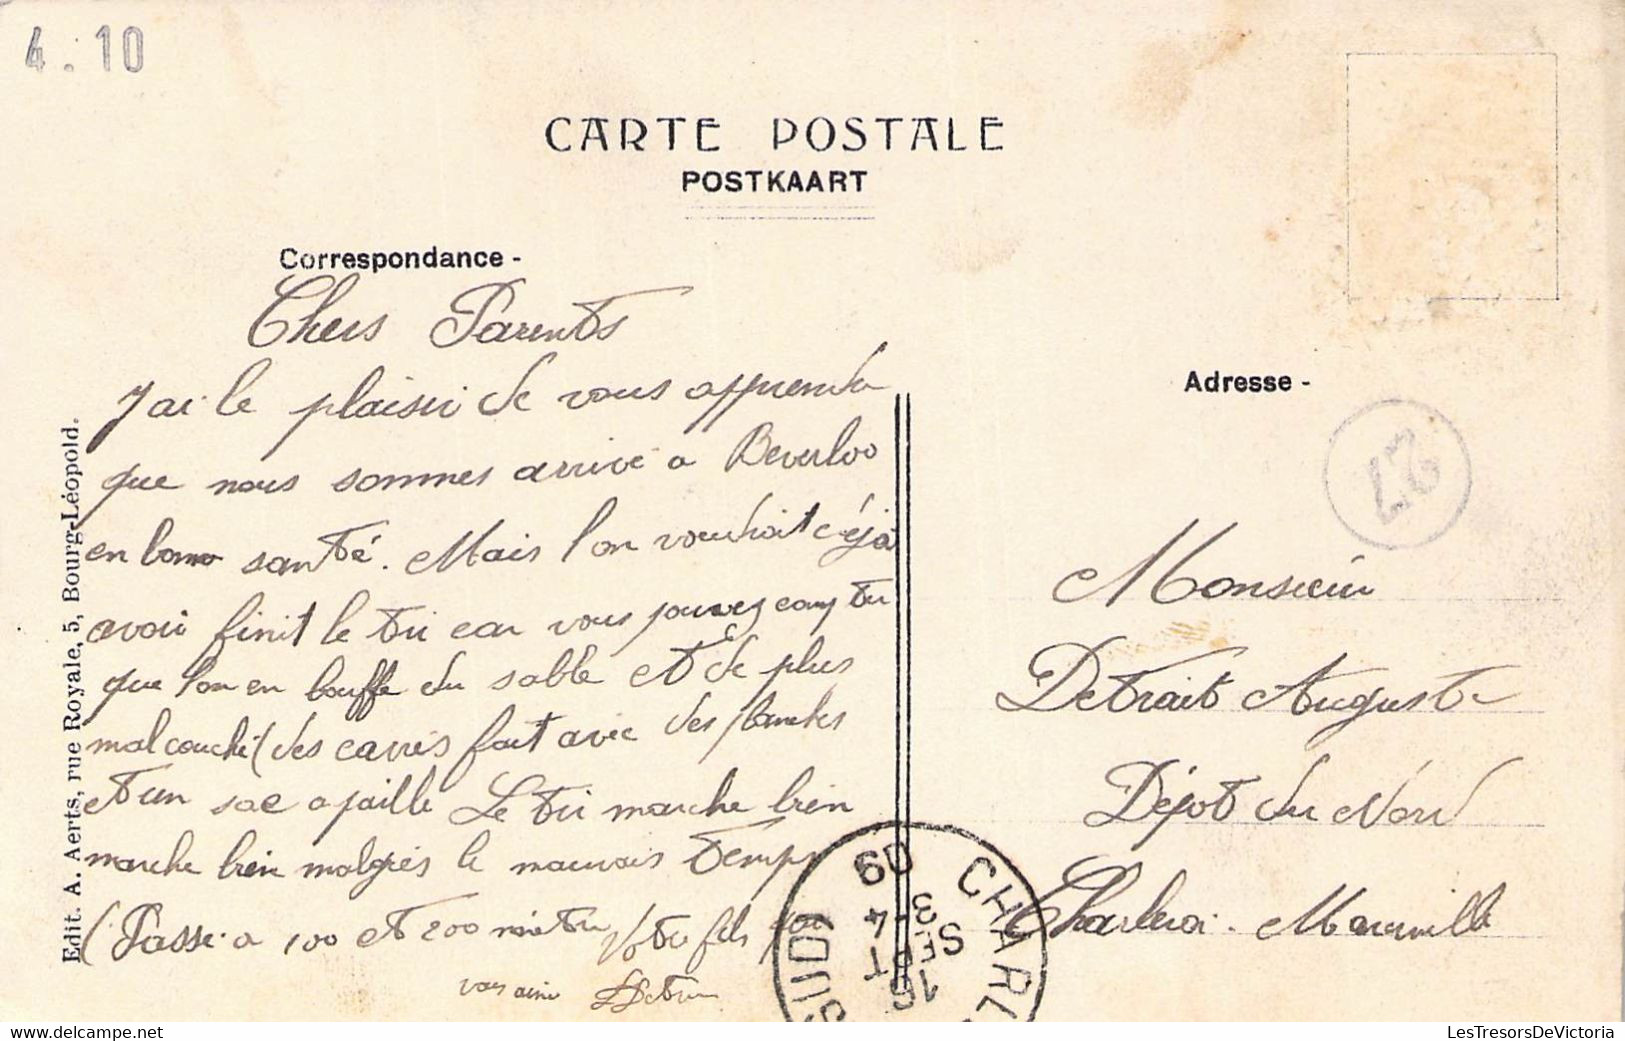 4.10
CARTE POSTALE
POSTKAART
Correspondance -
Chers Parents
J'ai le plaisir de vous apprendre
que nous sommes arrivé a Beverloo
en bonne santé. Mais l'on voudrait déjà
avoir finit le tir car vous pouvez compter
que l'on en bouffe du sable et de plus
mal couché (des carrés fait avec des planches
et un sac a paille Le tir marche bien
marche bien malgrés le mauvais temps
(Passe a 100 et 200 mètres Votre fils qui
vous aime Detrait
Edit. A. Aerts, rue Royale, 5, Bourg-Léopold.
Adresse -
27
Monsieur
Detrait Auguste
Dépôt du Nord
Charleroi.
CHARL
SUD
15
SEPT
3-4
09
LesTresorsDeVictoria.com